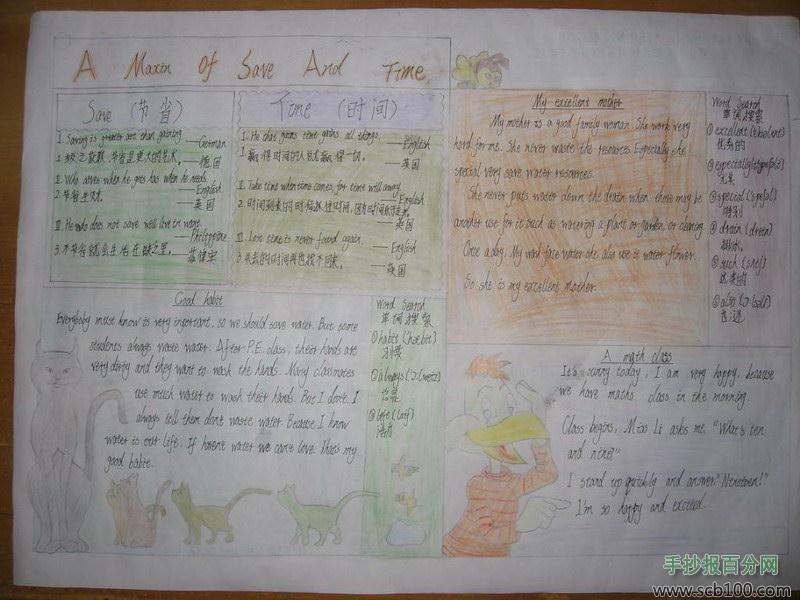 A Maxin Of Save And Time
Save (节省)
I. Saving is greater art than gaining
German
德国
II. Who saves when he gets has when he needs.
English
2. 节省生财。
英国
III. He who does not save well live in want.
Philippine
3. 不节省就会生活在缺之里。
菲律宾
Time (时间)
I. He that gains time gains all things.
English
1. 赢得时间的人就赢得一切。
英国
II. Take time when time comes, for time will away.
English
英国
III. Lost time is never found again.
English
3. 失去的时间再也找不回来。
英国
My excellent mother
My mother is a good family woman. She work very
hard for me. She never waste the resources. Especially she
special very save water resources.
She never puts water down the drain when there may be
another use for it such as watering a plant or garden, or cleaning.
Once a day. My wash face water she also use it water flower.
So she is my excellent mother.
Word Search
单词搜索
① excellent
优秀的
② especially
尤其
③ special
特别
④ drain
⑤ such
⑥ also
Good habit
Everybody must know is very important, so we should save water. But some
students always waste water. After P.E. class, their hands are
very dirty and they want to wash the hands. Many classmates
use much water to wash their hands. But I don't. I
always tell them don't waste water. Because I know
water is our life. If haven't water we can't live. That's my
good habit.
Word Search
单词搜索
① habit
习惯
② always
总是
③ life
A math class
It's sunny today, I am very happy, because
we have maths class in the morning.
Class begins, Miss Li asks me, "What's ten
and nine?"
I stand up quickly and answer." Nineteen!"
I'm so happy and excited.
手抄报百分网
www.scb100.com